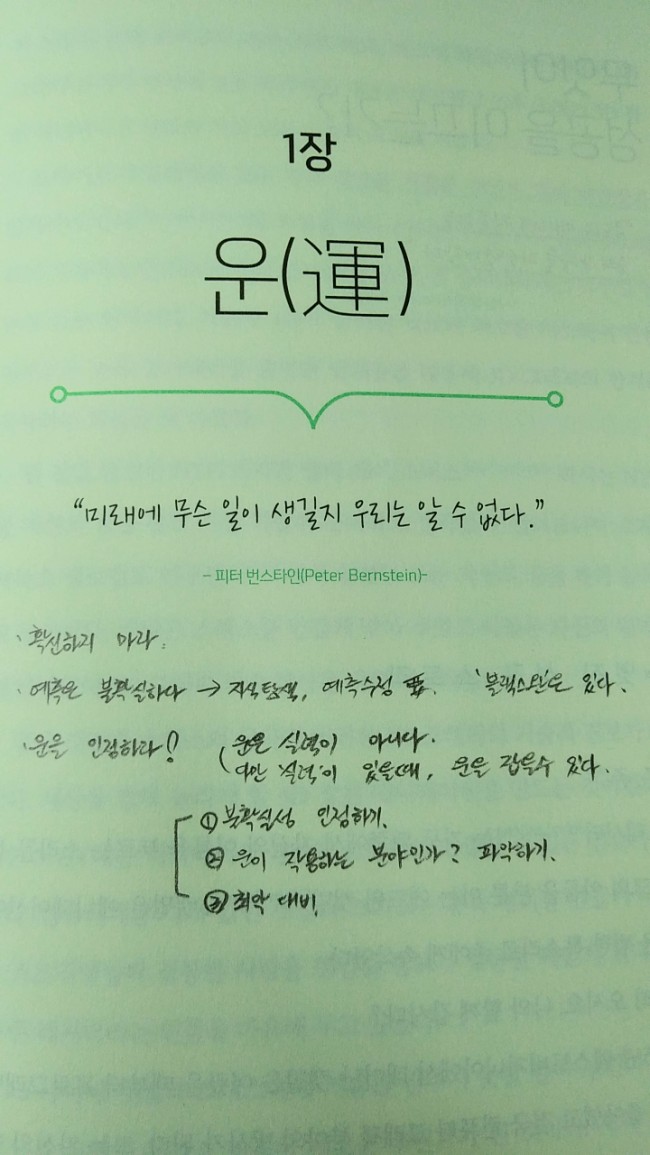 1장
운(運)
“미래에 무슨 일이 생길지 우리는 알 수 없다.”
- 피터 번스타인(Peter Bernstein)-
· 확신하지 마라.
· 예측은 불확실하다 → 지식탐색, 예측수정 要. '블랙스완'은 있다.
· 운을 인정하라! ( 운은 실력이 아니다.
다만 '실력'이 있을때, 운을 잡을수 있다.
① 불확실성 인정하기.
② 운이 작용하는 분야인가? 파악하기.
③ 최악 대비.